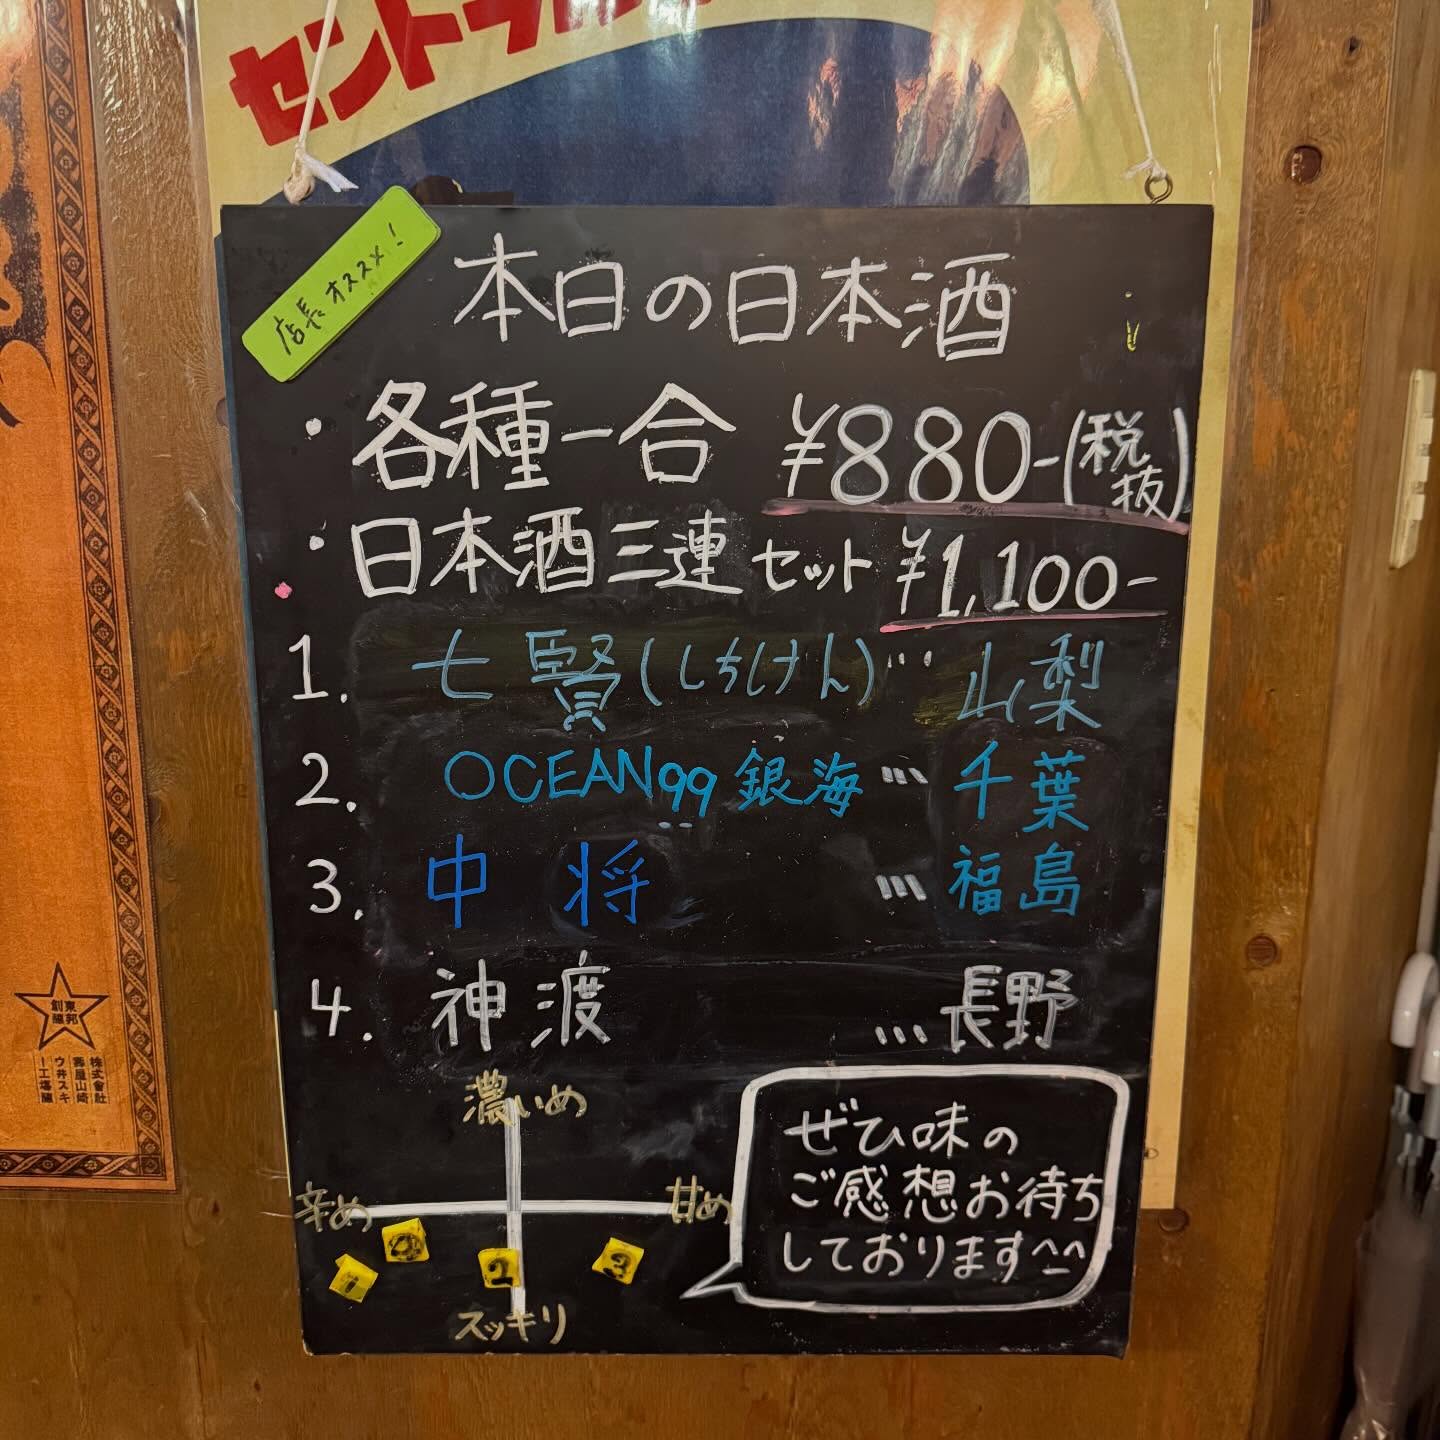 セントラル
店長オススメ!
本日の日本酒
・各種一合 ¥880-(税抜)
・日本酒三連セット ¥1,100-
1. 七賢(しちけん)… 山梨
2. OCEAN99 銀海 … 千葉
3. 中将 … 福島
4. 神渡 … 長野
濃いめ
辛め 甘め
1 2 3
スッキリ
ぜひ味の
ご感想お待ち
しております^-^
東邦
創醸
株式會社
壽屋山崎
ウ井スキ
ー工場醸